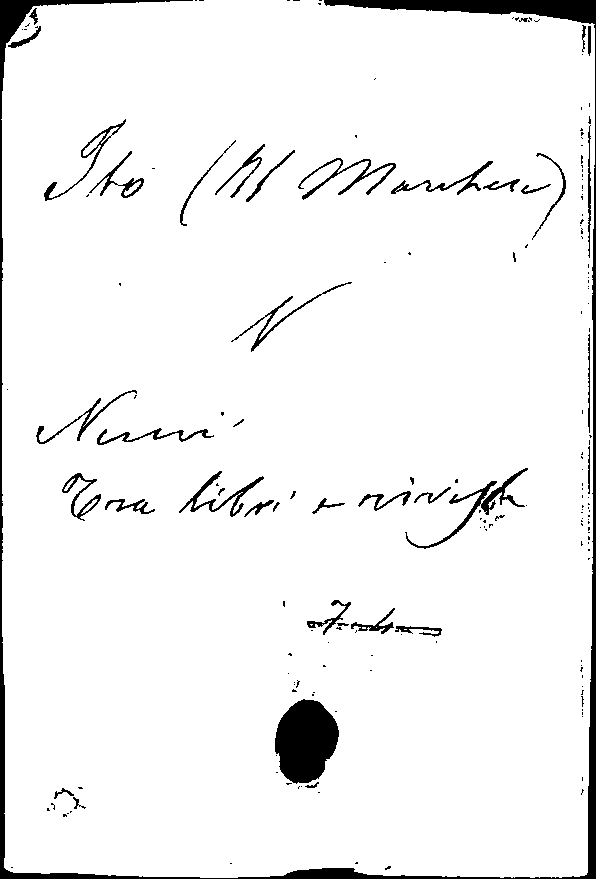 Ibo (M Marchese)
V
Nervi
Tra libri e riviste